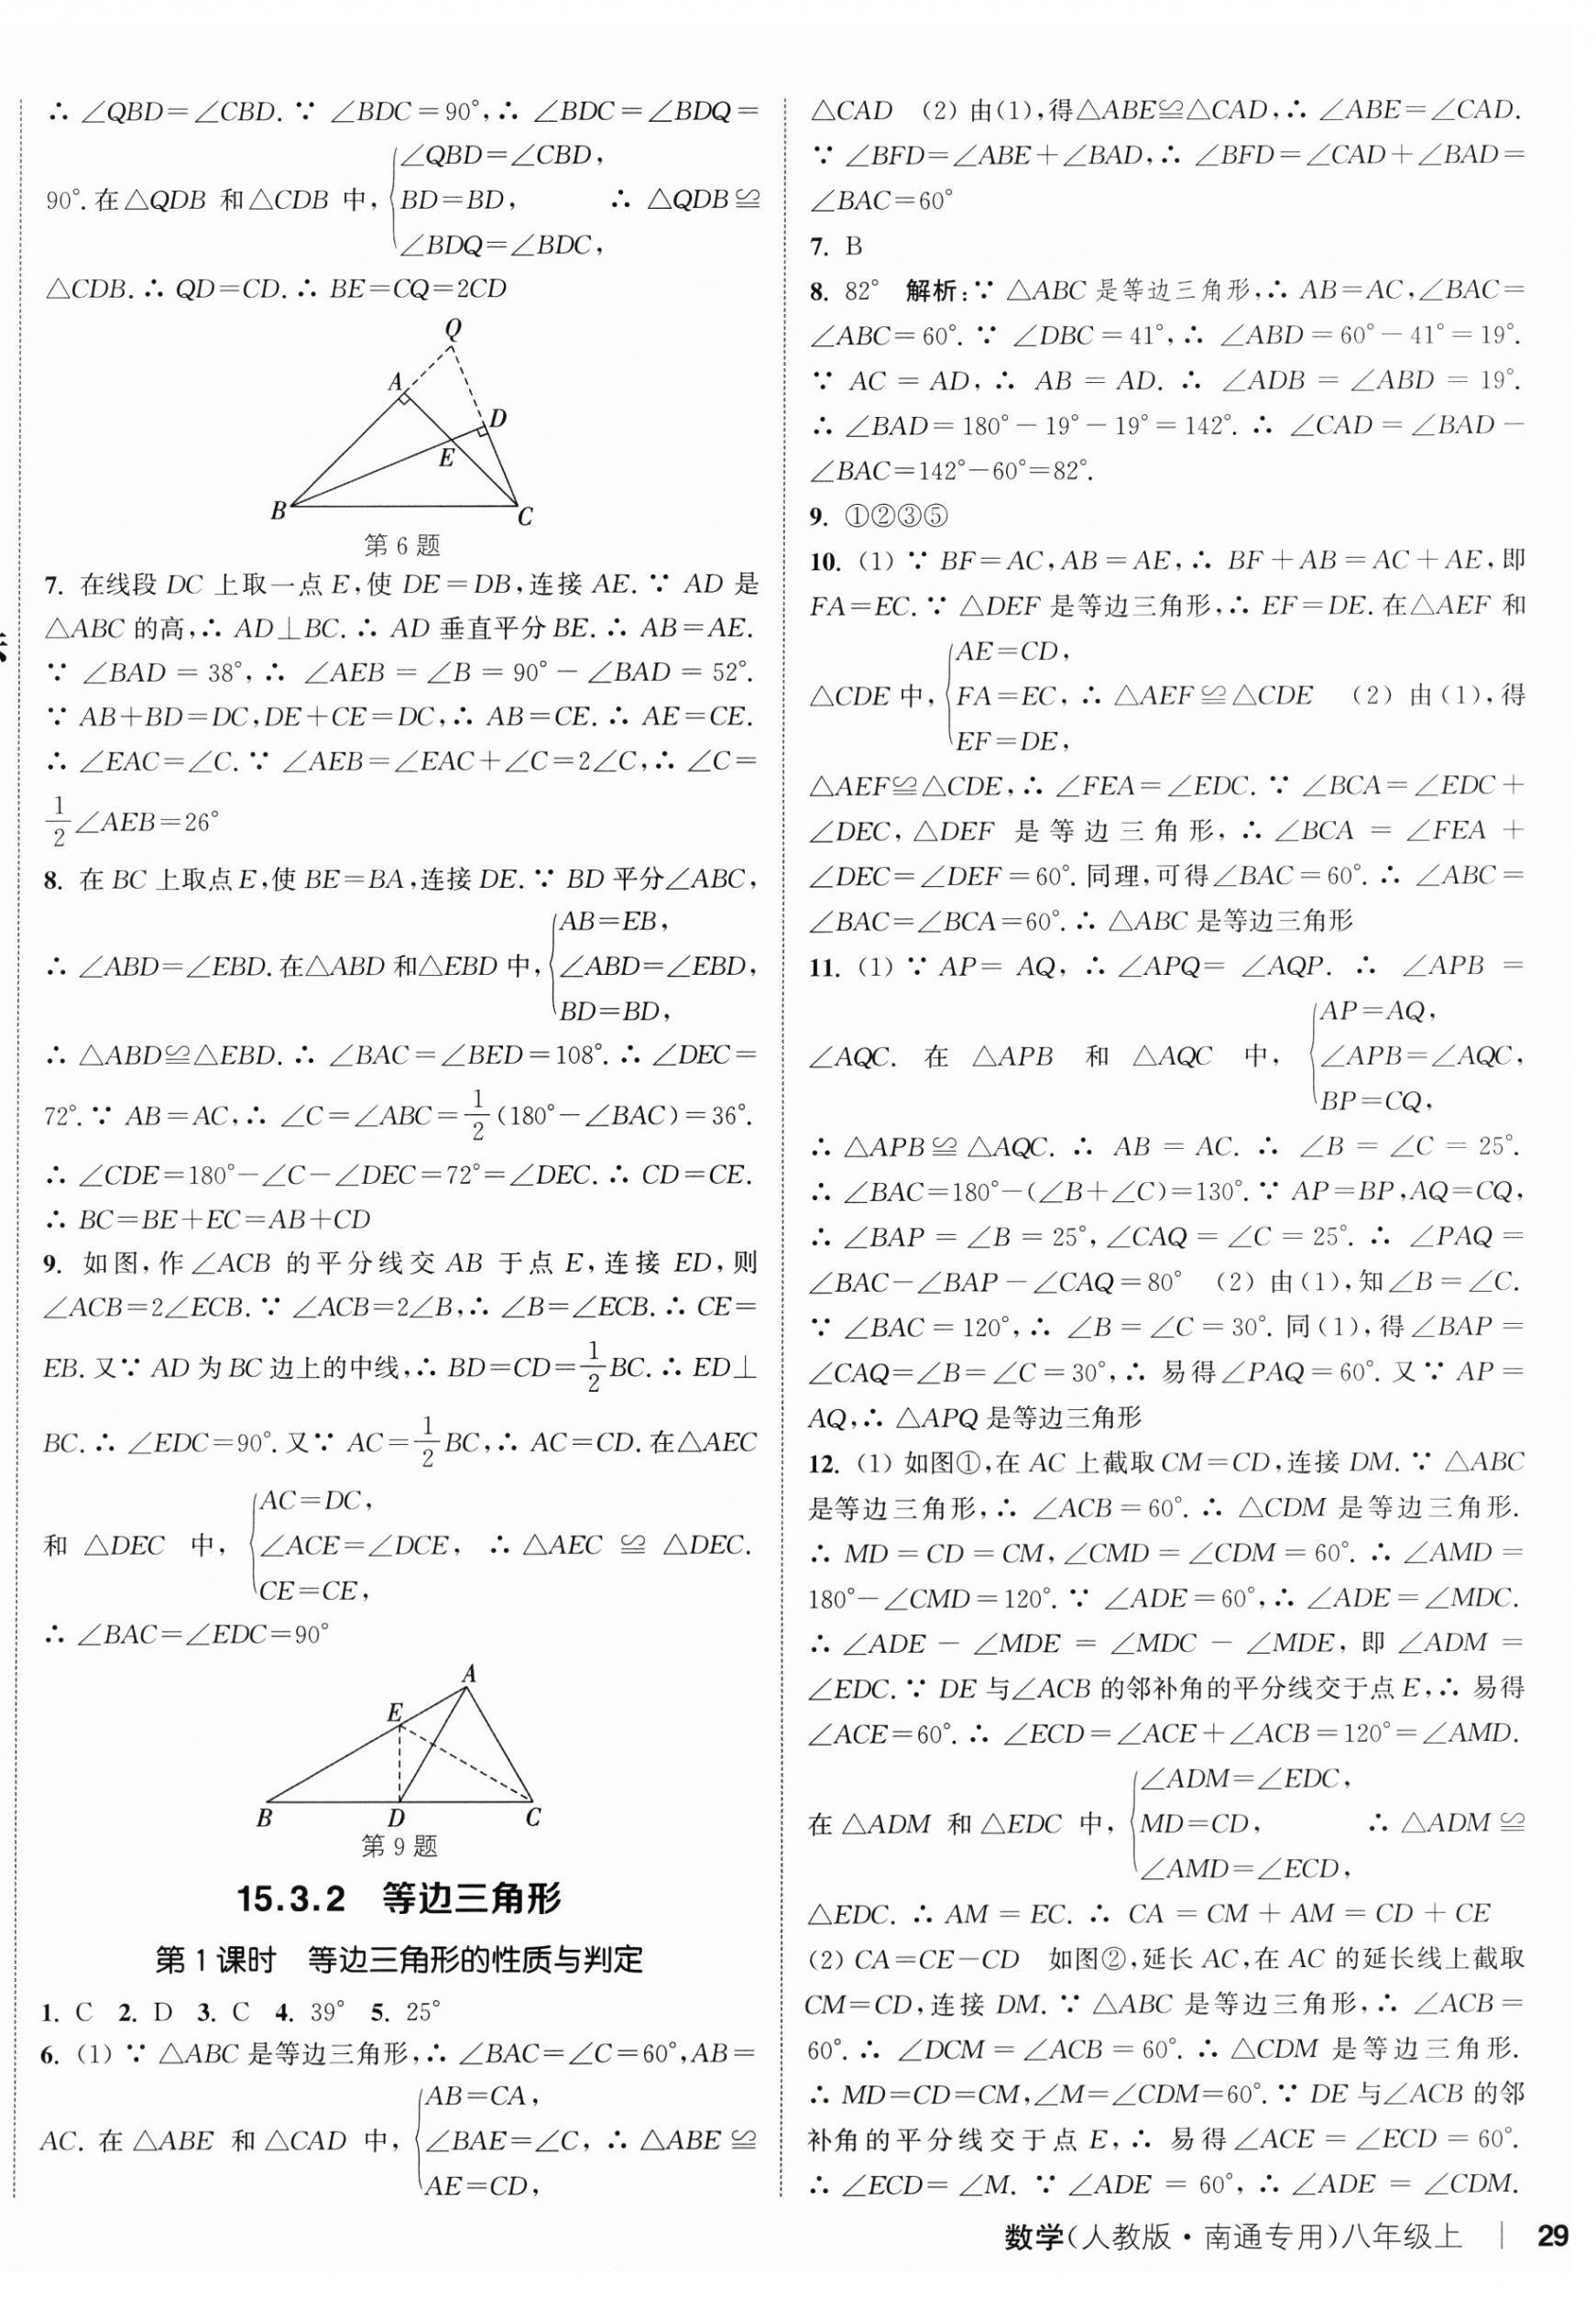 ∴ ∠QBD=∠CBD. ∵ ∠BDC=90°,∴ ∠BDC=∠BDQ=
90°. 在△QDB 和△CDB 中, {∠QBD=∠CBD, BD=BD, ∠BDQ=∠BDC, ∴ △QDB≌
△CDB. ∴ QD=CD. ∴ BE=CQ=2CD
Q
A
D
E
B
C
第 6 题
7. 在线段 DC 上取一点 E,使 DE=DB,连接 AE. ∵ AD 是
△ABC 的高,∴ AD⊥BC. ∴ AD 垂直平分 BE. ∴ AB=AE.
∵ ∠BAD=38°,∴ ∠AEB=∠B=90°-∠BAD=52°.
∵ AB+BD=DC,DE+CE=DC,∴ AB=CE. ∴ AE=CE.
∴ ∠EAC=∠C. ∵ ∠AEB=∠EAC+∠C=2∠C,∴ ∠C=
1/2∠AEB=26°
8. 在 BC 上取点 E,使 BE=BA,连接 DE. ∵ BD 平分∠ABC,
∴ ∠ABD=∠EBD. 在△ABD 和△EBD 中, {AB=EB, ∠ABD=∠EBD, BD=BD,
∴ △ABD≌△EBD. ∴ ∠BAC=∠BED=108°. ∴ ∠DEC=
72°. ∵ AB=AC,∴ ∠C=∠ABC=1/2(180°-∠BAC)=36°.
∴ ∠CDE=180°-∠C-∠DEC=72°=∠DEC. ∴ CD=CE.
∴ BC=BE+EC=AB+CD
9. 如图,作∠ACB 的平分线交 AB 于点 E,连接 ED,则
∠ACB=2∠ECB. ∵ ∠ACB=2∠B,∴ ∠B=∠ECB. ∴ CE=
EB. 又∵ AD 为 BC 边上的中线,∴ BD=CD=1/2BC. ∴ ED⊥
BC. ∴ ∠EDC=90°. 又∵ AC=1/2BC,∴ AC=CD. 在△AEC
和 △DEC 中, {AC=DC, ∠ACE=∠DCE, CE=CE, ∴ △AEC ≌ △DEC.
∴ ∠BAC=∠EDC=90°
A
E
B
D
C
第 9 题
15.3.2 等边三角形
第 1 课时 等边三角形的性质与判定
1. C 2. D 3. C 4. 39° 5. 25°
6. (1) ∵ △ABC 是等边三角形,∴ ∠BAC=∠C=60°,AB=
AC. 在 △ABE 和△CAD 中, {AB=CA, ∠BAE=∠C, AE=CD, ∴ △ABE≌
△CAD (2) 由(1),得△ABE≌△CAD,∴ ∠ABE=∠CAD.
∵ ∠BFD=∠ABE+∠BAD,∴ ∠BFD=∠CAD+∠BAD=
∠BAC=60°
7. B
8. 82° 解析:∵ △ABC 是等边三角形,∴ AB=AC,∠BAC=
∠ABC=60°. ∵ ∠DBC=41°,∴ ∠ABD=60°-41°=19°.
∵ AC=AD,∴ AB=AD. ∴ ∠ADB=∠ABD=19°.
∴ ∠BAD=180°-19°-19°=142°. ∴ ∠CAD=∠BAD-
∠BAC=142°-60°=82°.
9. ①②③⑤
10. (1) ∵ BF=AC,AB=AE,∴ BF+AB=AC+AE,即
FA=EC. ∵ △DEF 是等边三角形,∴ EF=DE. 在△AEF 和
△CDE 中, {AE=CD, FA=EC, EF=DE, ∴ △AEF≌△CDE (2) 由(1),得
△AEF≌△CDE,∴ ∠FEA=∠EDC. ∵ ∠BCA=∠EDC+
∠DEC, △DEF 是等边三角形,∴ ∠BCA=∠FEA+
∠DEC=∠DEF=60°. 同理,可得∠BAC=60°. ∴ ∠ABC=
∠BAC=∠BCA=60°. ∴ △ABC 是等边三角形
11. (1) ∵ AP=AQ,∴ ∠APQ=∠AQP. ∴ ∠APB=
∠AQC. 在 △APB 和 △AQC 中, {AP=AQ, ∠APB=∠AQC, BP=CQ,
∴ △APB≌△AQC. ∴ AB=AC. ∴ ∠B=∠C=25°.
∴ ∠BAC=180°-(∠B+∠C)=130°. ∵ AP=BP,AQ=CQ,
∴ ∠BAP=∠B=25°,∠CAQ=∠C=25°. ∴ ∠PAQ=
∠BAC-∠BAP-∠CAQ=80° (2) 由(1),知∠B=∠C.
∵ ∠BAC=120°,∴ ∠B=∠C=30°. 同(1),得∠BAP=
∠CAQ=∠B=∠C=30°,∴ 易得∠PAQ=60°. 又∵ AP=
AQ,∴ △APQ 是等边三角形
12. (1) 如图①,在 AC 上截取 CM=CD,连接 DM. ∵ △ABC
是等边三角形,∴ ∠ACB=60°. ∴ △CDM 是等边三角形.
∴ MD=CD=CM,∠CMD=∠CDM=60°. ∴ ∠AMD=
180°-∠CMD=120°. ∵ ∠ADE=60°,∴ ∠ADE=∠MDC.
∴ ∠ADE-∠MDE=∠MDC-∠MDE,即∠ADM=
∠EDC. ∵ DE 与∠ACB 的邻补角的平分线交于点 E,∴ 易得
∠ACE=60°. ∴ ∠ECD=∠ACE+∠ACB=120°=∠AMD.
在 △ADM 和△EDC 中, {∠ADM=∠EDC, MD=CD, ∠AMD=∠ECD, ∴ △ADM≌
△EDC. ∴ AM=EC. ∴ CA=CM+AM=CD+CE
(2) CA=CE-CD 如图②,延长 AC,在 AC 的延长线上截取
CM=CD,连接 DM. ∵ △ABC 是等边三角形,∴ ∠ACB=
60°. ∴ ∠DCM=∠ACB=60°. ∴ △CDM 是等边三角形.
∴ MD=CD=CM,∠M=∠CDM=60°. ∵ DE 与∠ACB 的邻
补角的平分线交于点 E,∴ 易得∠ACE=∠ECD=60°.
∴ ∠ECD=∠M. ∵ ∠ADE=60°,∴ ∠ADE=∠CDM.
数学(人教版·南通专用)八年级上 | 29